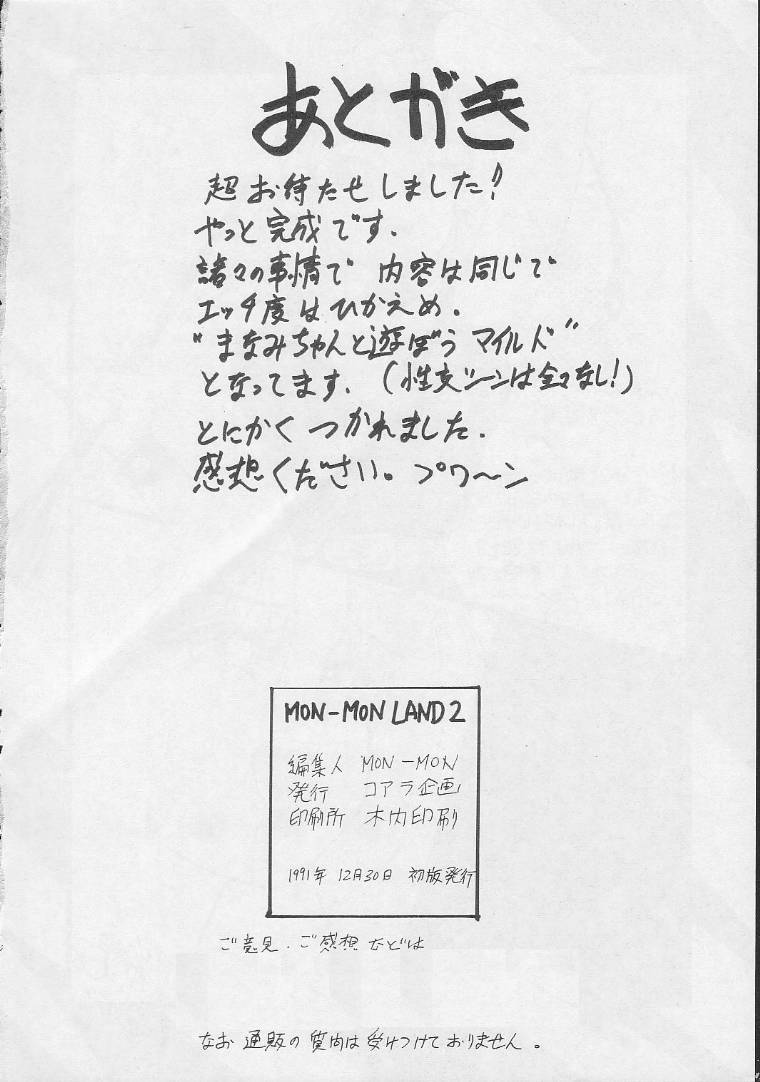 あとがき
超お待たせしました!
やっと完成です.
諸々の事情で 内容は同じで
エッチ度はひかえめ.
"まなみちゃんと遊ぼう マイルド"
となってます.(性交シーンは全々なし!)
とにかく つかれました.
感想ください。プワ〜ン
MON-MON LAND 2
編集人 MON-MON
発行 コアラ企画
印刷所 木内印刷
1991年 12月30日 初版発行
ご意見.ご感想などは
なお 通販の質問は受けつけておりません。